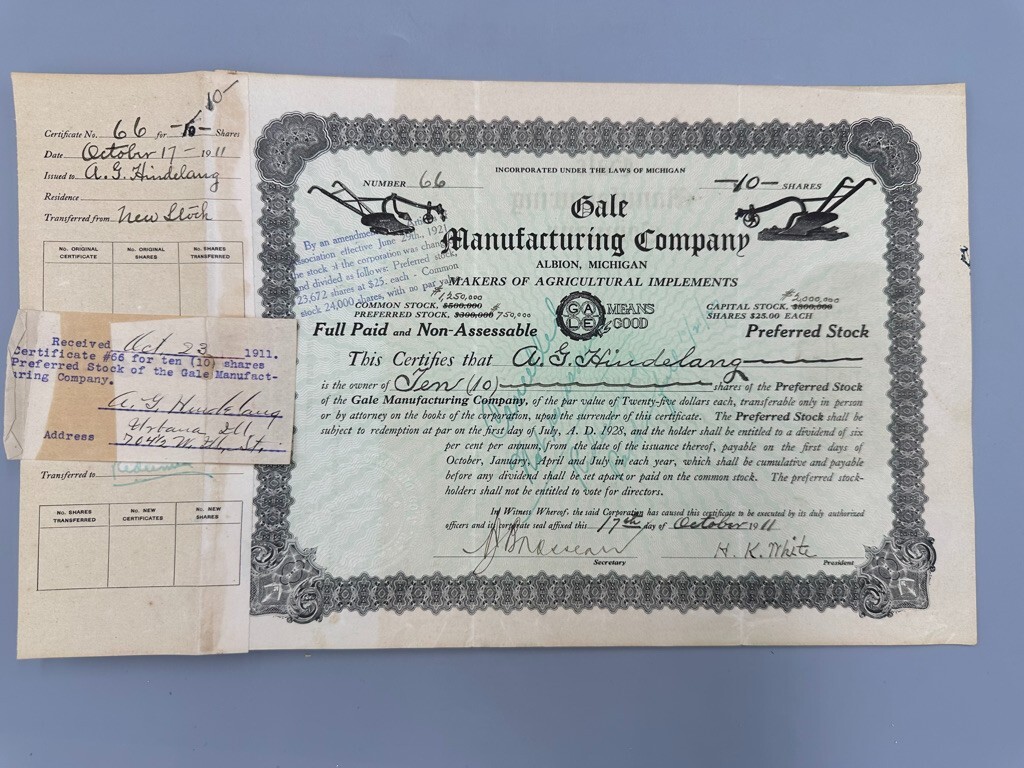 -10-
Certificate No. 66 for -10- Shares
Date October 17- 1911
Issued to A. G. Hindelang
Residence
Transferred from New Stock
No. ORIGINAL CERTIFICATE
No. ORIGINAL SHARES
No. SHARES TRANSFERRED
Received Oct 23 1911.
Certificate #66 for ten (10) shares
Preferred Stock of the Gale Manufact-
uring Company.
A. G. Hindelang
Urbana Ill
Address
Transferred to
No. SHARES TRANSFERRED
No. NEW CERTIFICATES
No. NEW SHARES
INCORPORATED UNDER THE LAWS OF MICHIGAN
NUMBER 66
-10- SHARES
Gale
Manufacturing Company
ALBION, MICHIGAN
MAKERS OF AGRICULTURAL IMPLEMENTS
By an amendment
effective June 29th., 192
stock of the corporation was chang
and divided as follows: Preferred stock,
23,672 shares at $25. each - Common
stock 24,000 shares, with no par val
$1,250,000
COMMON STOCK, $500,000
PREFERRED STOCK, $300,000 $750,000
GALE MEANS GOOD
$2,000,000
CAPITAL STOCK, $800,000
SHARES $25.00 EACH
Full Paid and Non-Assessable
Preferred Stock
This Certifies that A. G. Hindelang
is the owner of Ten (10) shares of the Preferred Stock
of the Gale Manufacturing Company, of the par value of Twenty-five dollars each, transferable only in person
or by attorney on the books of the corporation, upon the surrender of this certificate. The Preferred Stock shall be
subject to redemption at par on the first day of July, A. D. 1928, and the holder shall be entitled to a dividend of six
per cent per annum, from the date of the issuance thereof, payable on the first days of
October, January, April and July in each year, which shall be cumulative and payable
before any dividend shall be set apart or paid on the common stock. The preferred stock-
holders shall not be entitled to vote for directors.
In Witness Whereof, the said Corporation has caused this certificate to be executed by its duly authorized
officers and its corporate seal affixed this 17th day of October 1911
H. K. White
Secretary
President